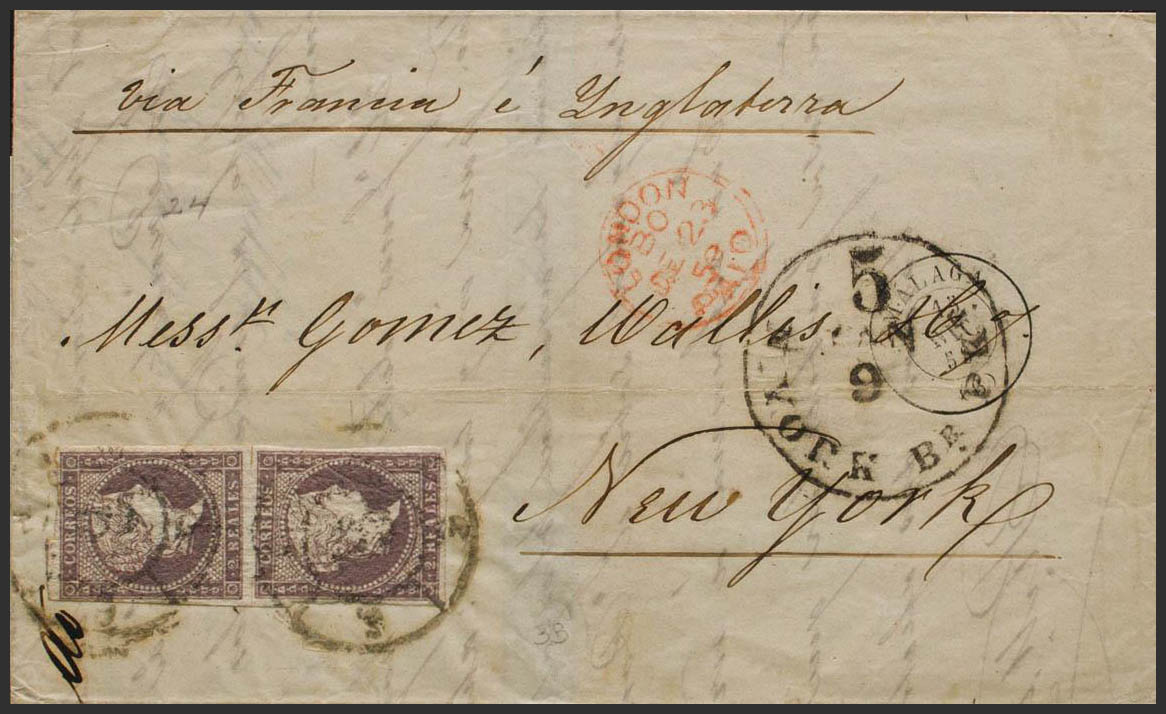 via Francia é Ynglaterra
24
LONDON
BO
DE 23
58
PAID
5
MALAGA
9
YORK BR PKT
Mess.rs Gomez, Wallis, & Co.
New York
CORREOS 2 REALES
CORREOS 2 REALES
33